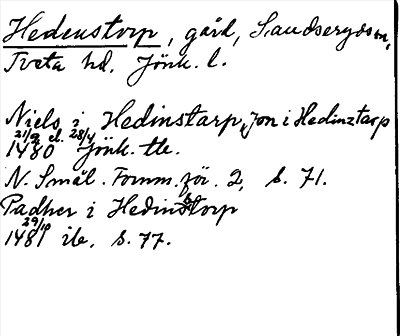 Hedenstorp, gård, Sandseryds sn,
Tveta hd. Jönk. l.
Niels i Hedinstarp, Jon i Hedinztarp
21/2 el. 28/4
1480 Jönk. tb.
N. Smål. Fornm.för. 2, s. 71.
Padher i Hedinstorp
29/10
1481 ib. s. 77.